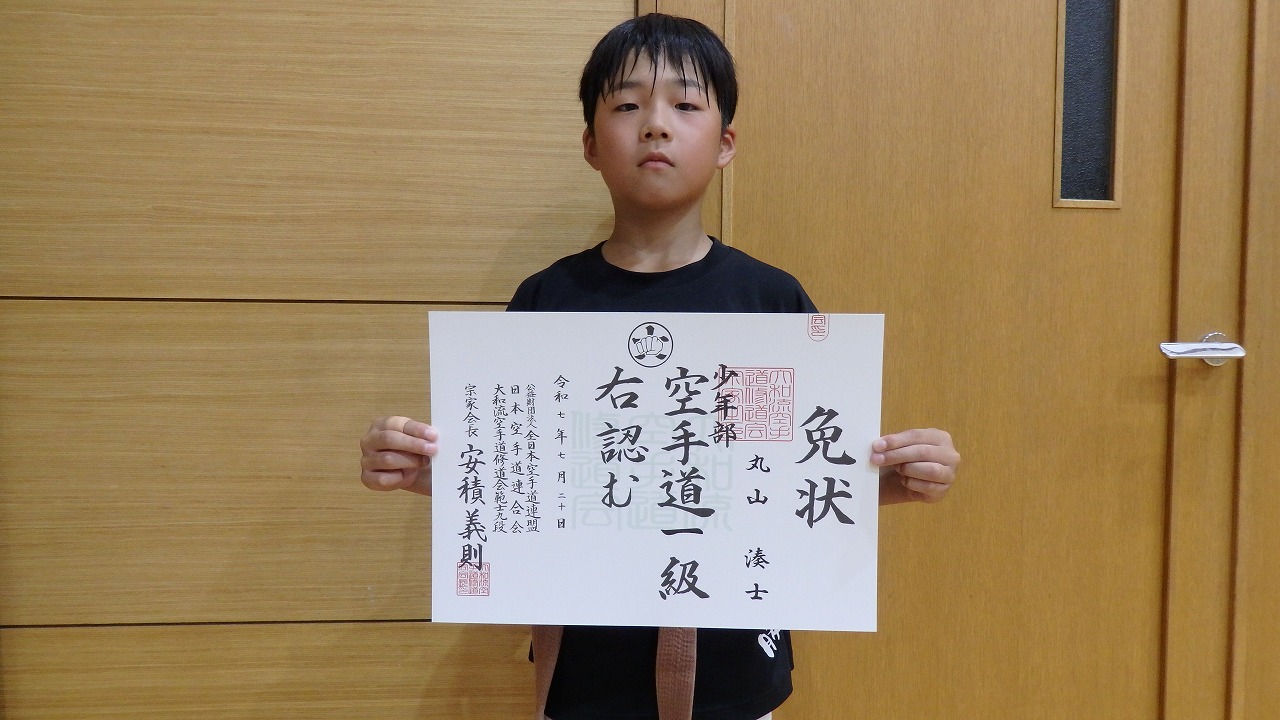 免状
丸山 湊士
少年部
空手道一級
右認む
令和七年七月二十日
公益財団法人全日本空手道連盟
日本空手道連合会
大和流空手道修道会範士九段
宗家会長 安積義則